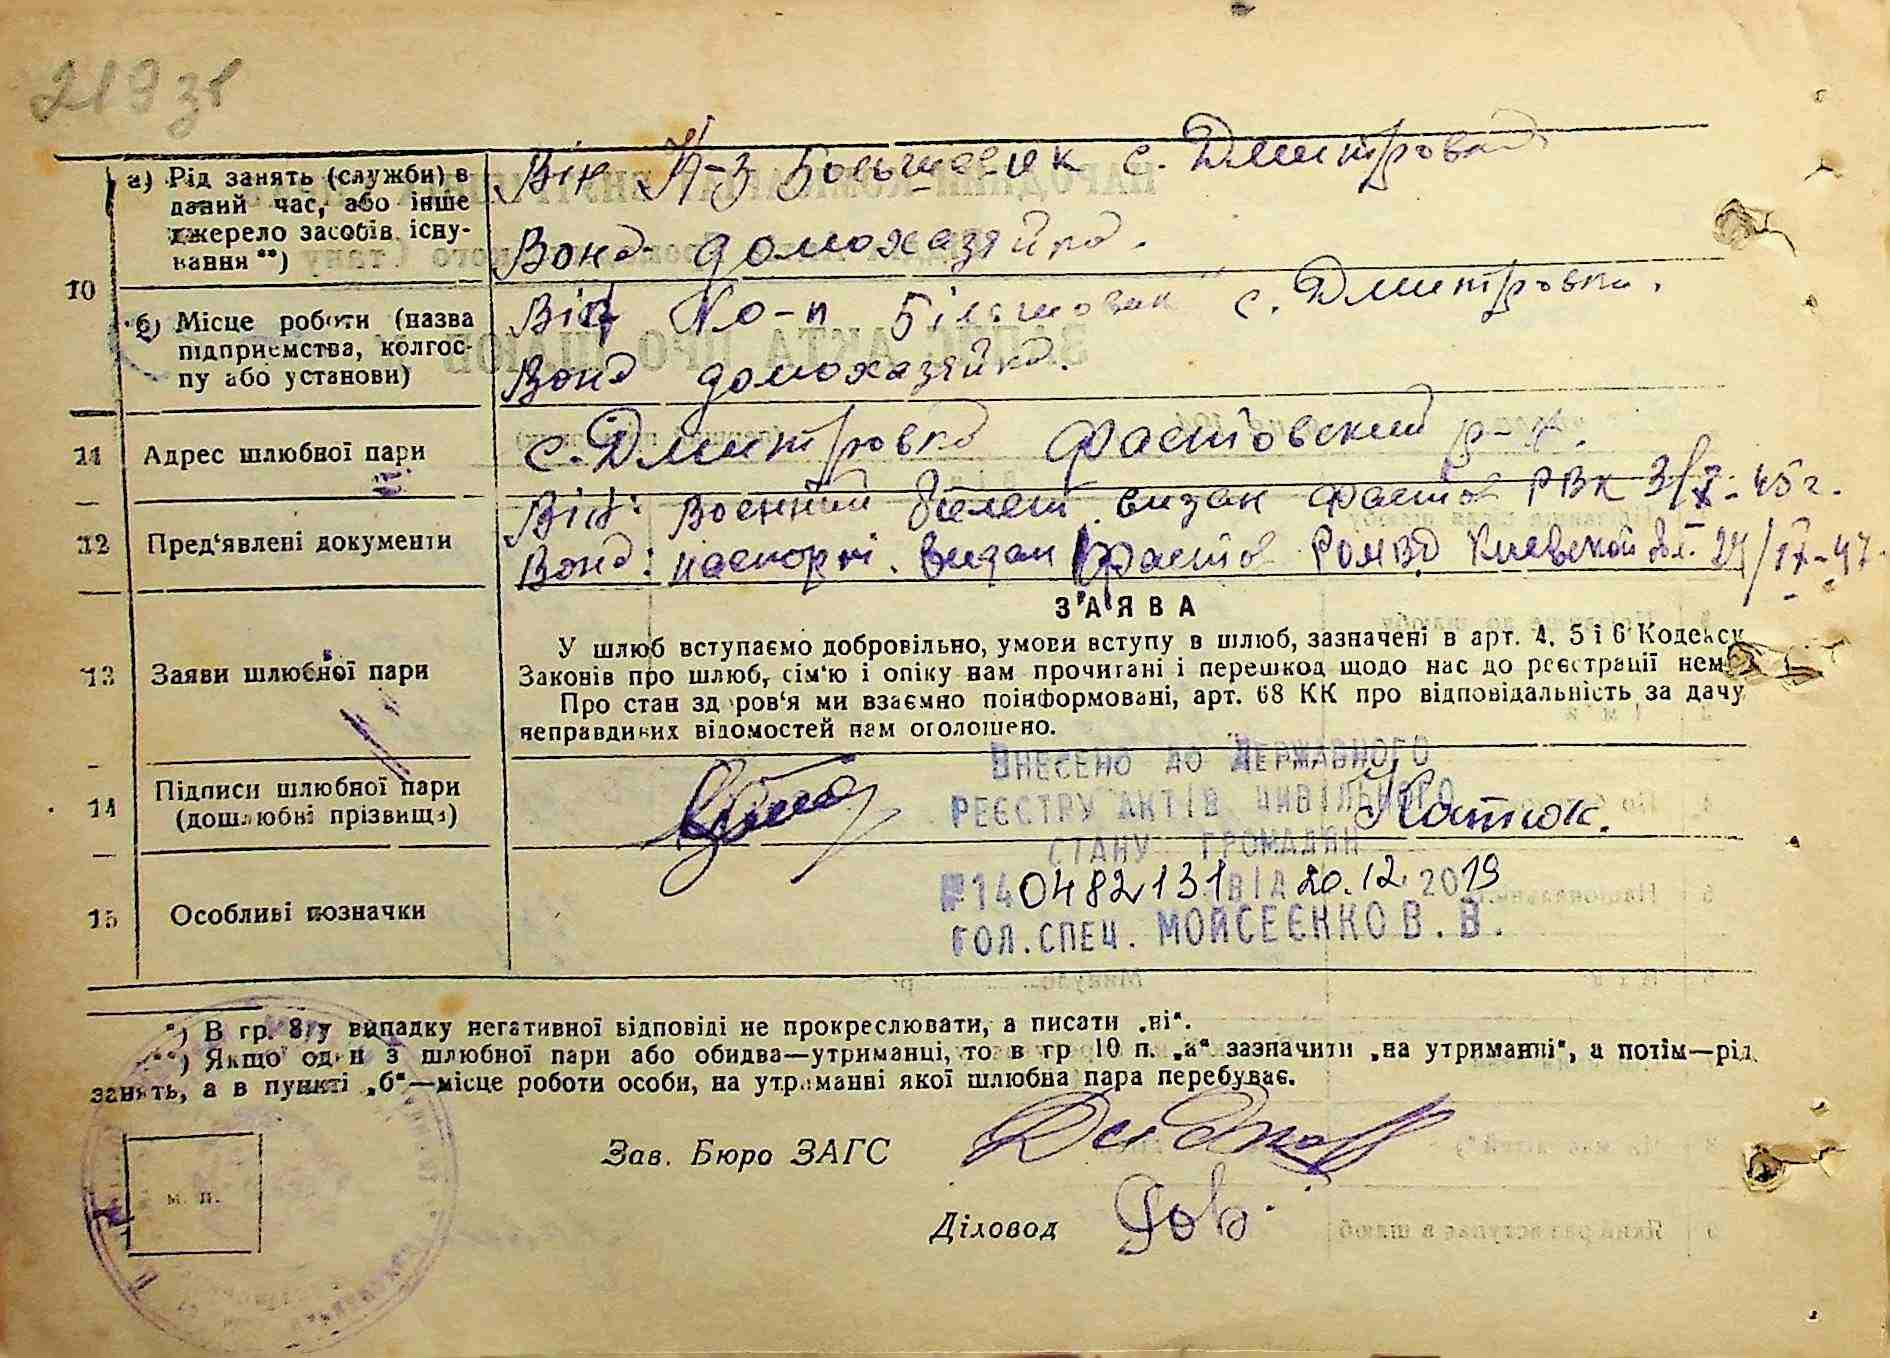 219 зв
а) Рід занять (служби) в
даний час, або інше
джерело засобів існу-
вання **)
Він К-з Большевик с. Дмитровка
Вона домохазяйка.
10
б) Місце роботи (назва
підприємства, колгос-
пу або установи)
Він Ко-п Більшовик с. Дмитровка.
Вона домохазяйка.
11 Адрес шлюбної пари
с. Дмитровка Фастовский р-н.
12 Пред'явлені документи
Він: Военний билет видан Фастов РВК 3/X-45 г.
Вона: паспорт. видан Фастов РОМВД Киевской обл. 24/IV-47.
ЗАЯВА
13 Заяви шлюбної пари
У шлюб вступаємо добровільно, умови вступу в шлюб, зазначені в арт. 4, 5 і 6 Кодексу
Законів про шлюб, сім'ю і опіку нам прочитані і перешкод щодо нас до реєстрації нема.
Про стан здоров'я ми взаємно поінформовані, арт. 68 КК про відповідальність за дачу
неправдивих відомостей нам оголошено.
14 Підписи шлюбної пари
(дошлюбні прізвища)
Катюк.
Внесено до Державного
реєстру актів цивільного
стану громадян
№140482131 від 20.12.2019
гол.спец. Мойсеєнко В.В.
15 Особливі позначки
*) В гр. 8 у випадку негативної відповіді не прокреслювати, а писати „ні“.
**) Якщо один з шлюбної пари або обидва—утриманці, то в гр 10 п. „а“ зазначити „на утриманні“, а потім—рід
занять, а в пункті „б“—місце роботи особи, на утриманні якої шлюбна пара перебуває.
Зав. Бюро ЗАГС
м. п.
Діловод